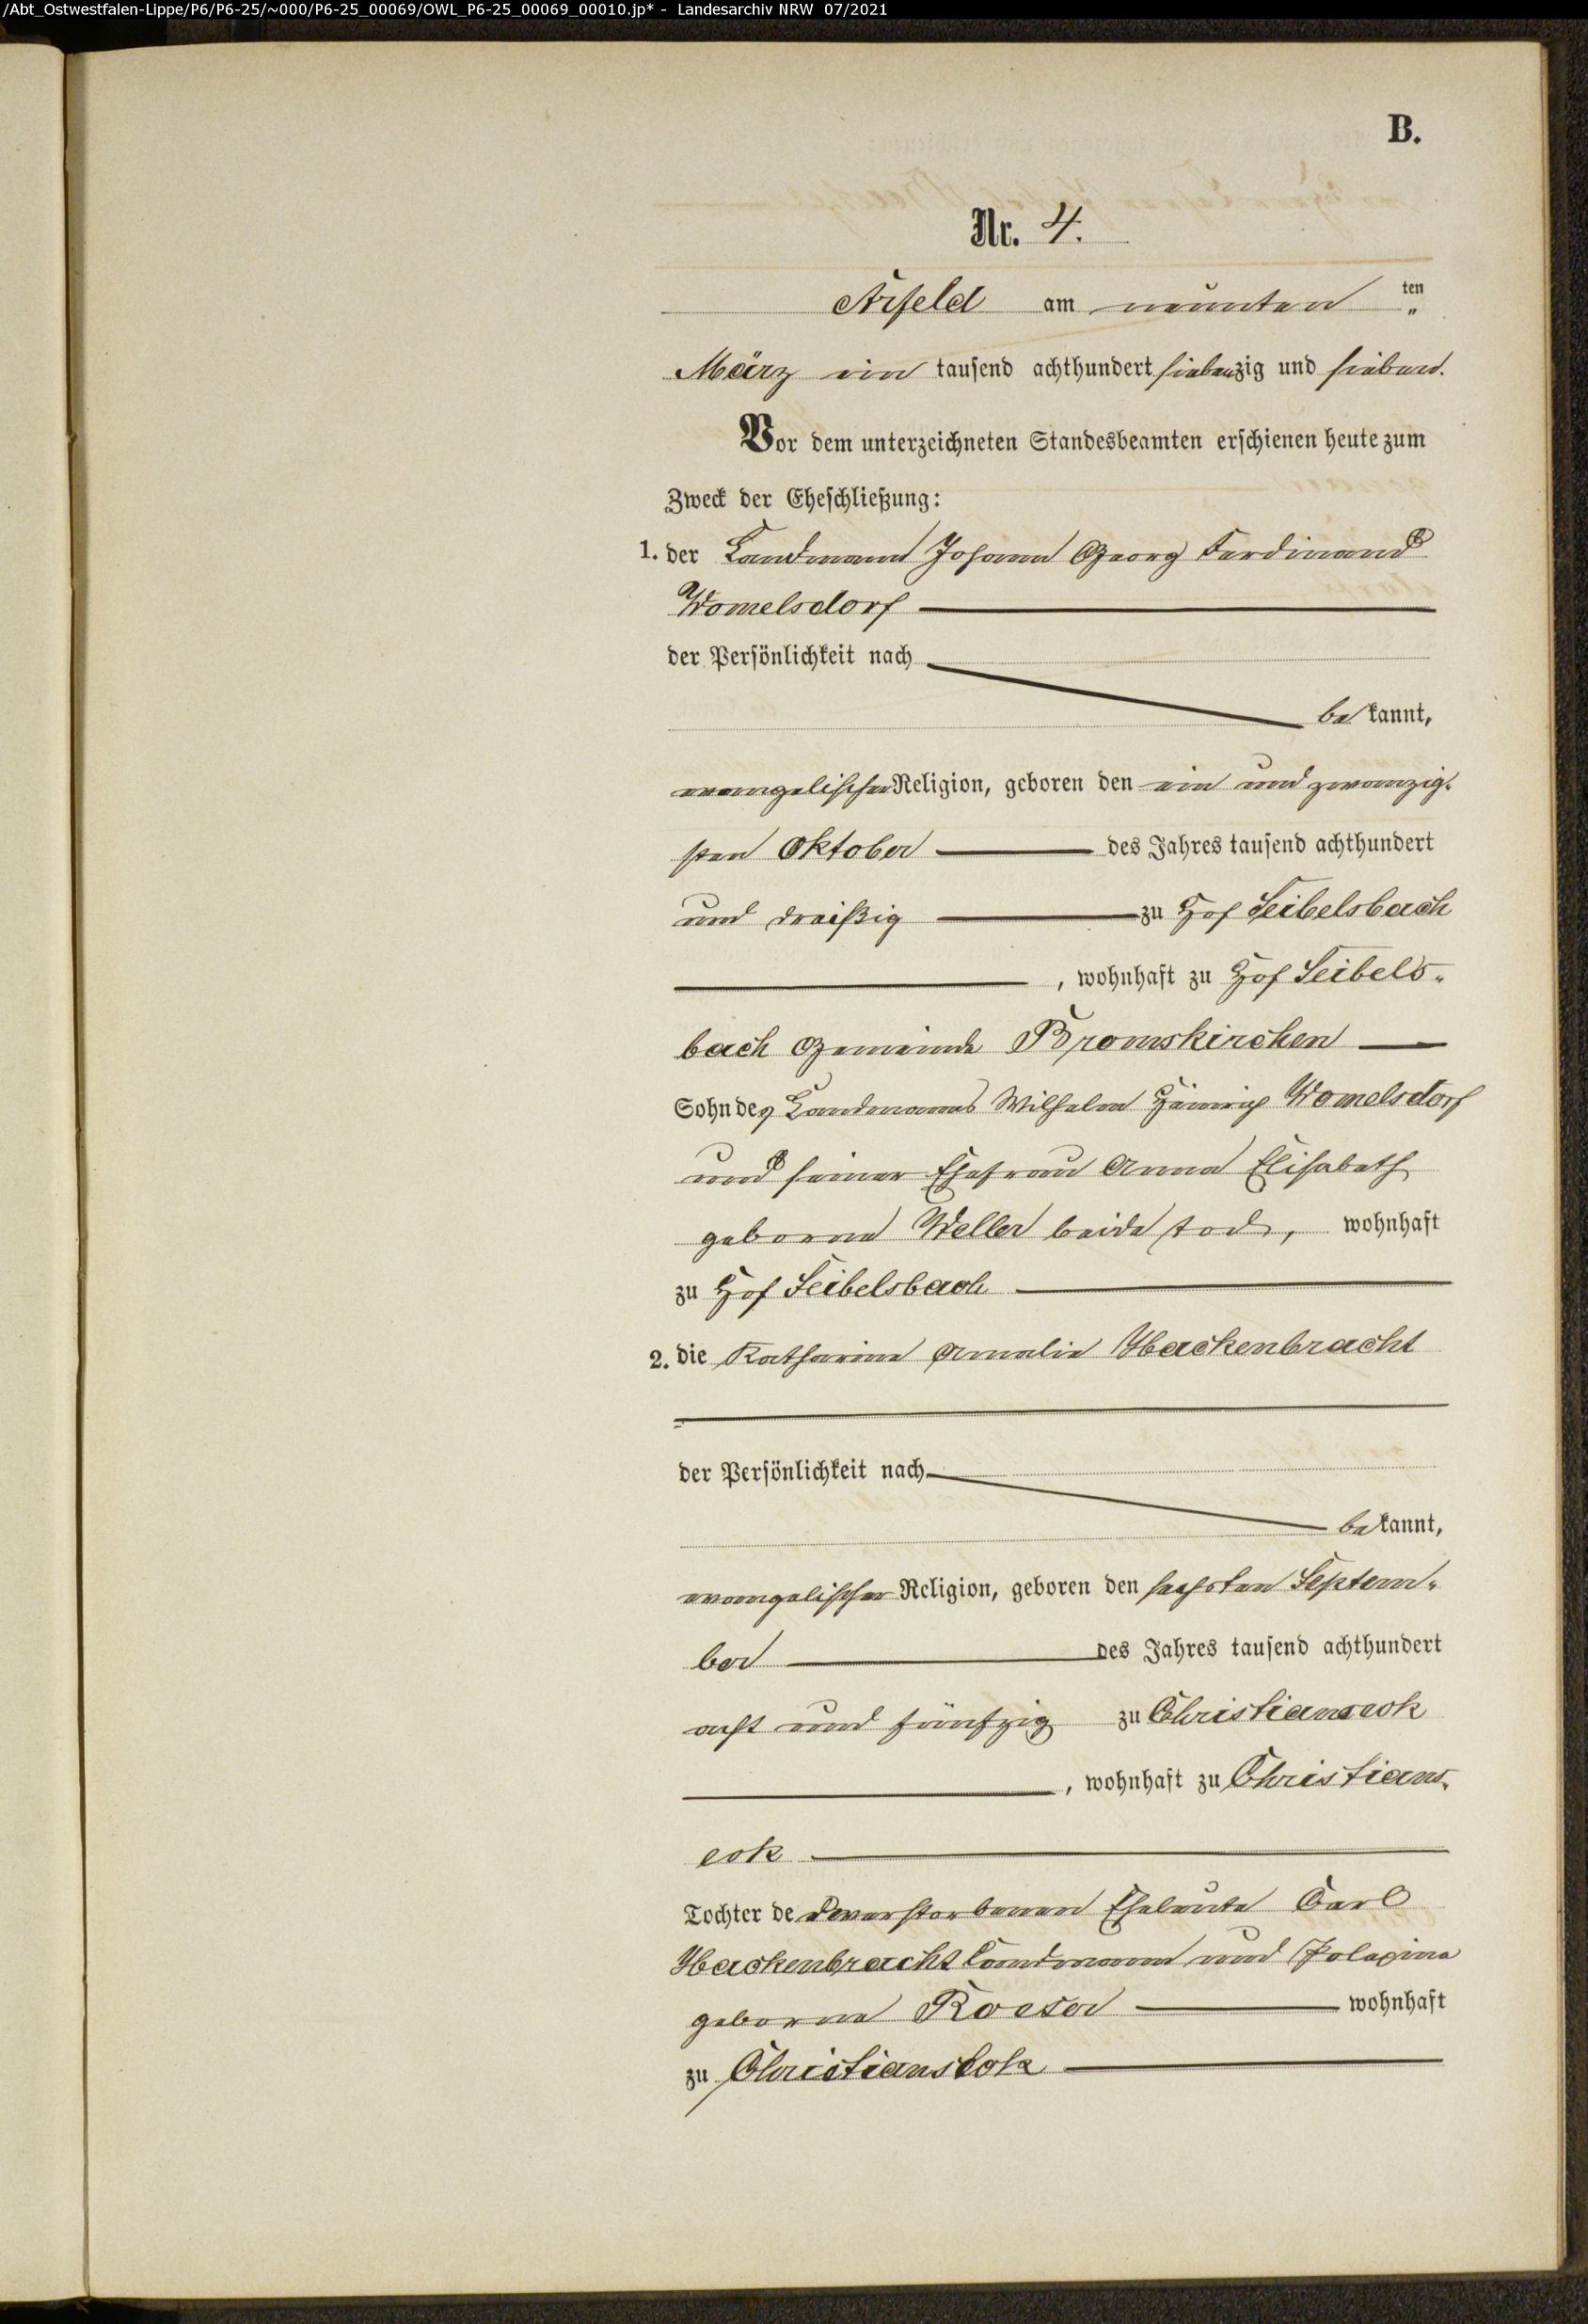 /Abt_Ostwestfalen-Lippe/P6/P6-25/~000/P6-25_00069/OWL_P6-25_00069_00010.jp* - Landesarchiv NRW 07/2021
B.
Nr. 4.
Arfeld am neunten ten
März ein tausend achthundert siebenzig und sieben.
Vor dem unterzeichneten Standesbeamten erschienen heute zum
Zweck der Eheschließung:
1. der Landmann Johann Georg Ferdinand
Womelsdorf
der Persönlichkeit nach
bekannt,
evangelischer Religion, geboren den ein und zwanzig-
sten Oktober des Jahres tausend achthundert
und dreißig zu Hof Seibelsbach
, wohnhaft zu Hof Seibels-
bach Gemeinde Bromskirchen
Sohn des Landmanns Wilhelm Heinrich Womelsdorf
und seiner Ehefrau Anna Elisabeth
geborne Weller beide tod, wohnhaft
zu Hof Seibelsbach
2. die Katharine Amalie Hackenbracht
der Persönlichkeit nach
bekannt,
evangelischer Religion, geboren den sechsten Septem-
ber des Jahres tausend achthundert
acht und fünfzig zu Christianseck
, wohnhaft zu Christians-
eck
Tochter der verstorbenen Eheleute Carl
Hackenbracht Landmann und
geborne Roeser wohnhaft
zu Christianseck